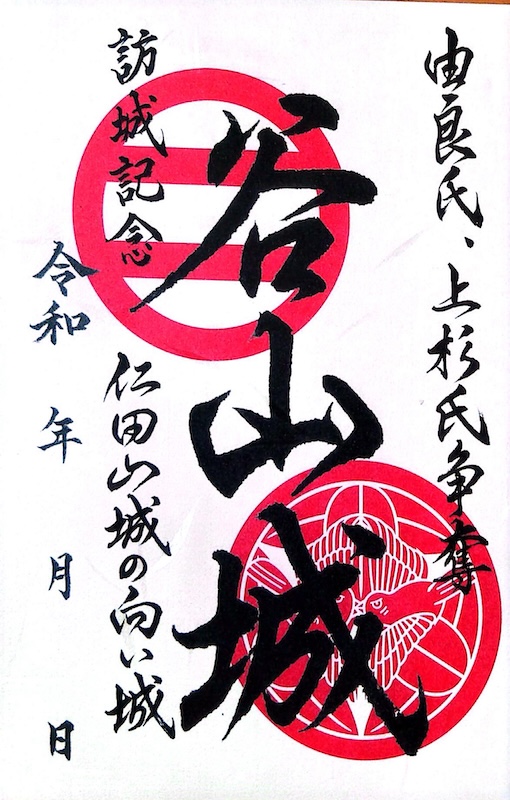 由良氏、上杉氏争奪
谷山城
訪城記念
仁田山城の向い城
令和 年 月 日